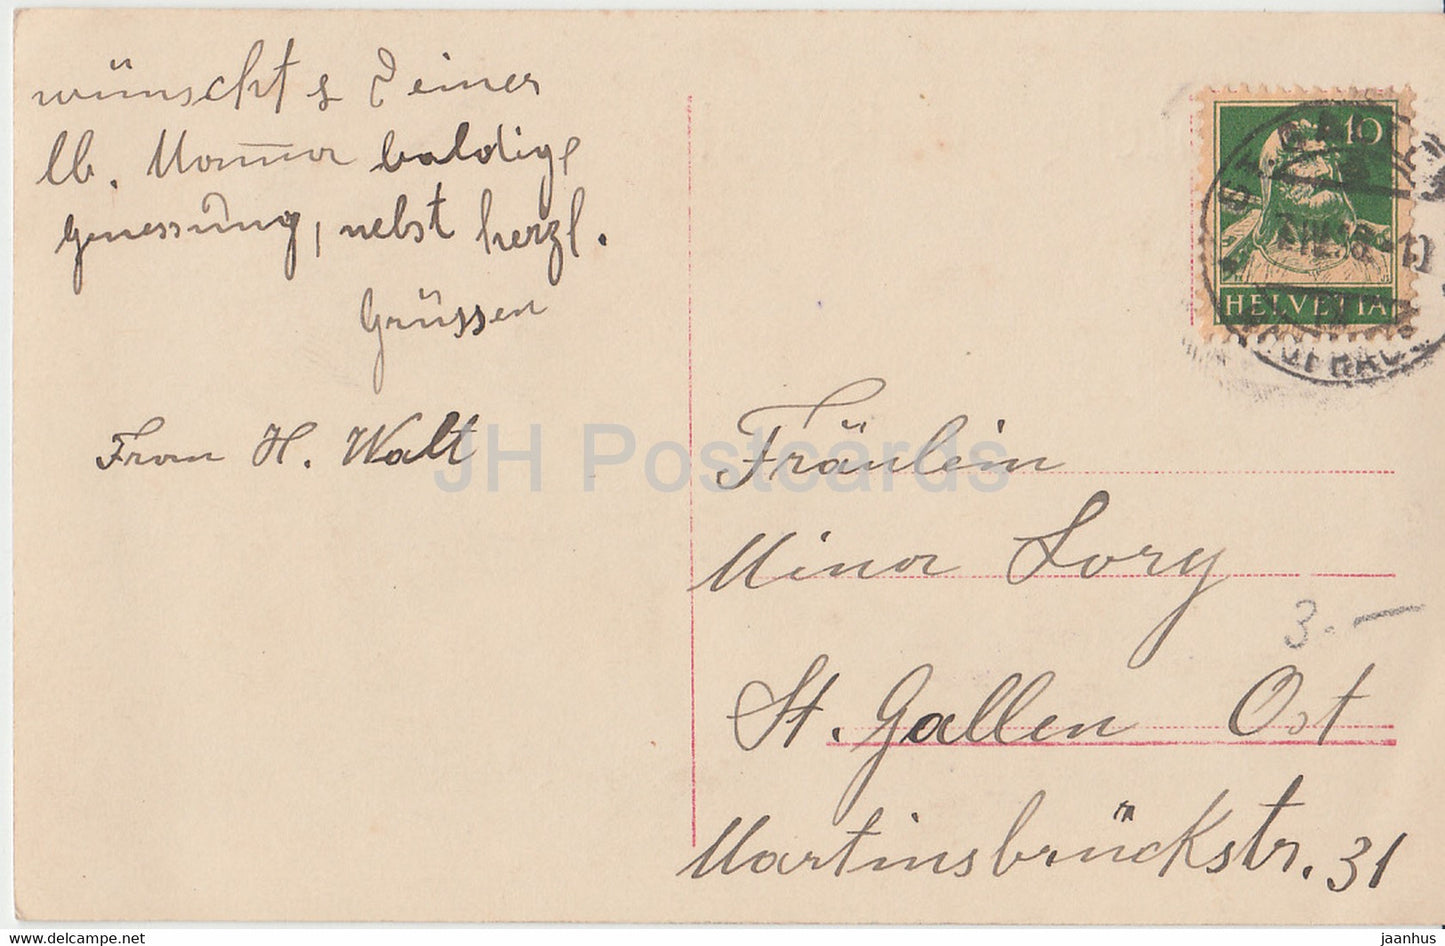 wünscht & Deiner
lb. Mama baldige
Genessung, nebst herzl.
Grüssen
From H. Walt
10
HELVETIA
ST. GALL
Fräulein
Mina Lory
3.-
St. Gallen Ost
Martinsbrückstr. 31
JH Postcards
jaanhus